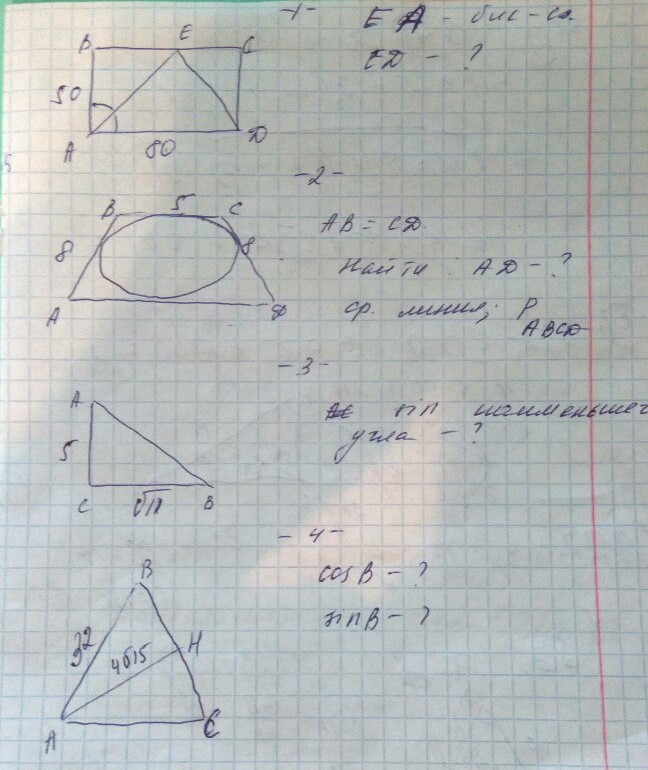 -1-
EA - бис-са.
ED - ?
B E C
50
A 80 D
-2-
AB = CD.
Найти: AD - ?
ср. линия; P
ABCD
B 5 C
8 8
A D
-3-
sin наименьшег
угла - ?
A
5
C √11 B
-4-
cos B - ?
sin B - ?
B
32
4√15 H
A C